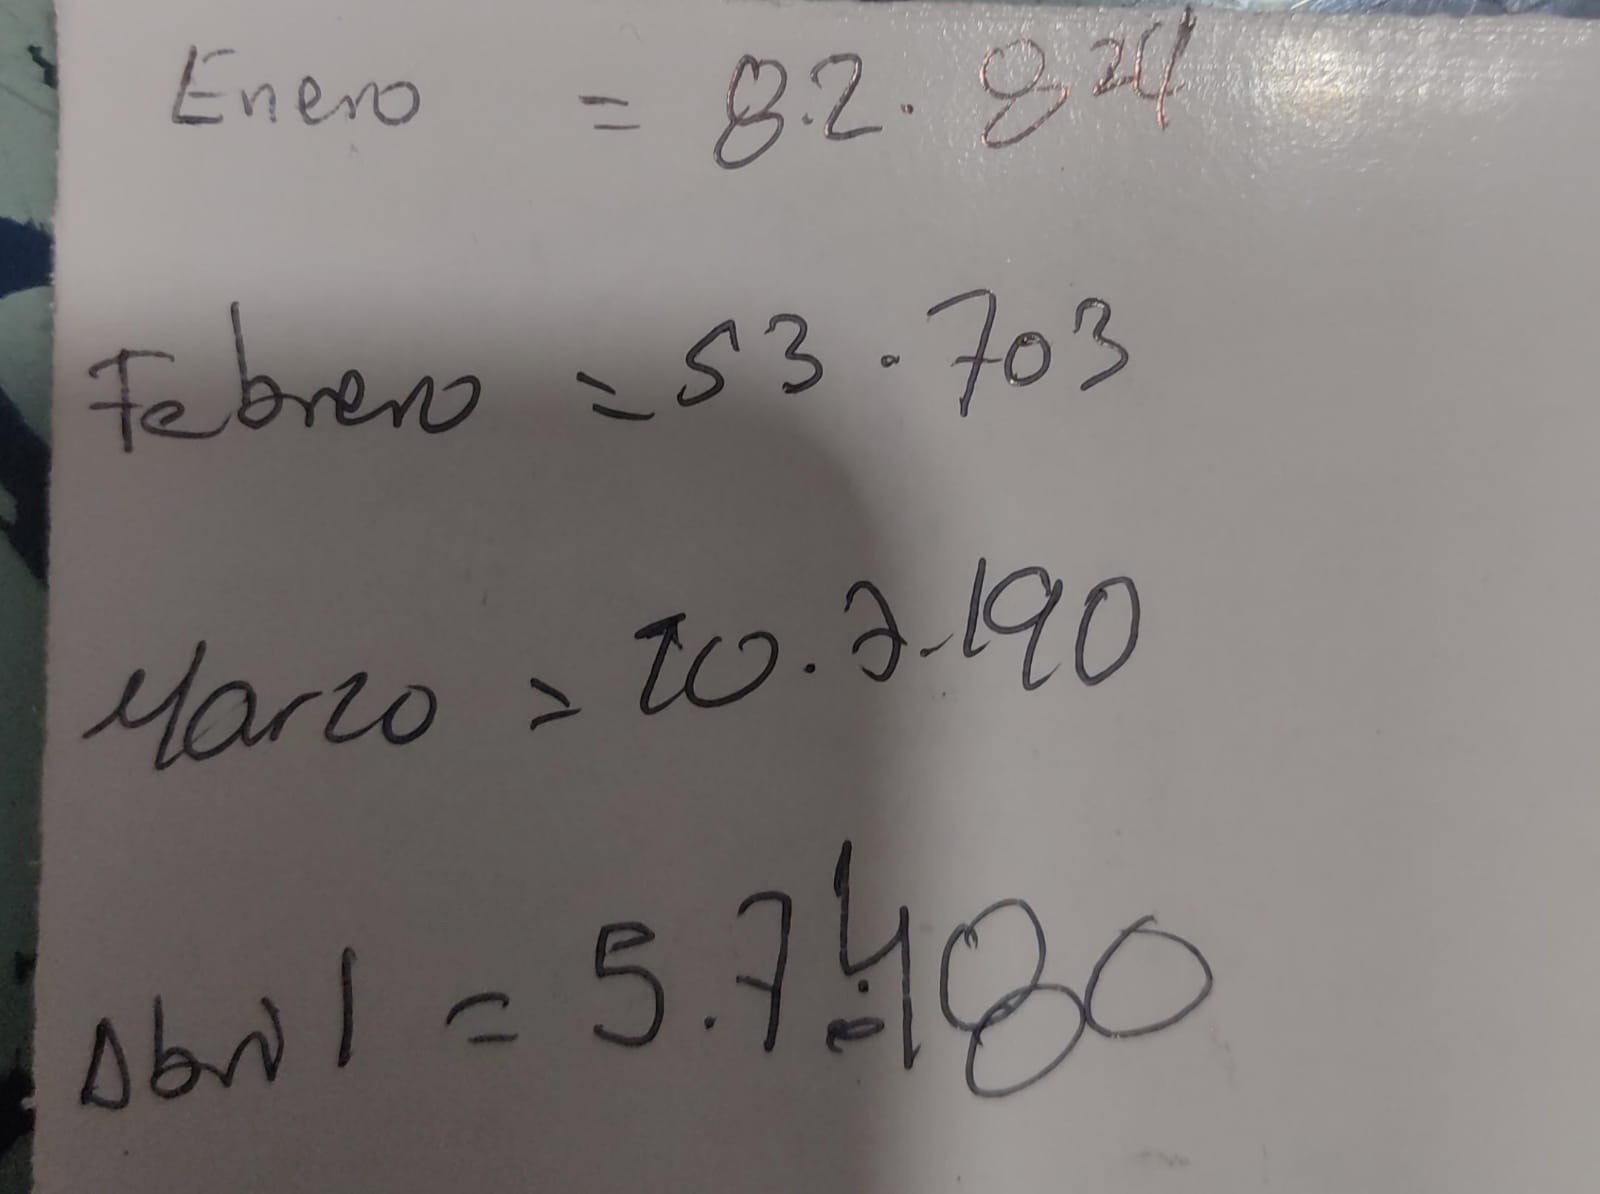 Enero = 8.2.824
Febrero = 53.703
Marzo = 20.2.190
Abril = 5.7.480